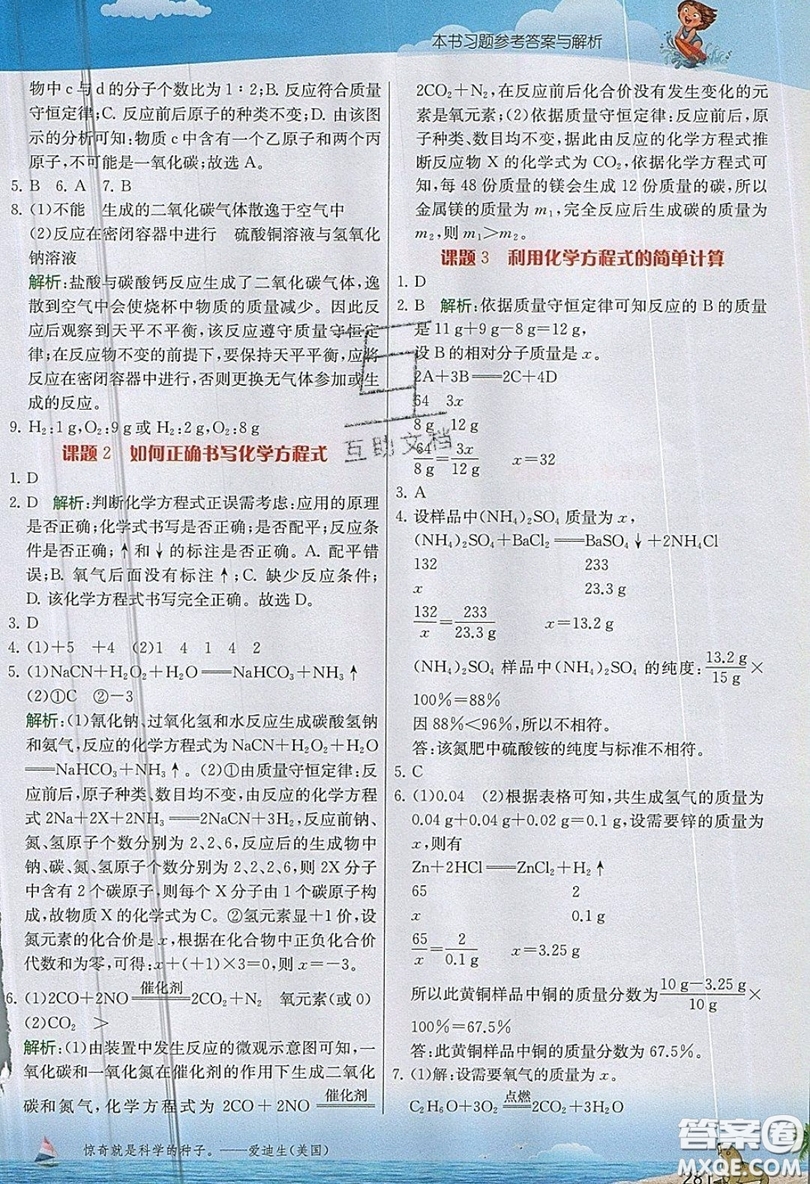 本书习题参考答案与解析
物中c与d的分子个数比为1∶2;B.反应符合质量
守恒定律;C.反应前后原子的种类不变;D.由该图
示的分析可知:物质c中含有一个乙原子和两个丙
原子,不可能是一氧化碳;故选A。
5. B 6. A 7. B
8. (1)不能 生成的二氧化碳气体散逸于空气中
(2)反应在密闭容器中进行 硫酸铜溶液与氢氧化
钠溶液
解析:盐酸与碳酸钙反应生成了二氧化碳气体,逸
散到空气中会使烧杯中物质的质量减少。因此反
应后观察到天平不平衡,该反应遵守质量守恒定
律;在反应物不变的前提下,要保持天平平衡,应将
反应在密闭容器中进行,否则更换无气体参加或生
成的反应。
9. H₂:1 g,O₂:9 g或H₂:2 g,O₂:8 g
课题2 如何正确书写化学方程式
1. D
2. D 解析:判断化学方程式正误需考虑:应用的原理
是否正确;化学式书写是否正确;是否配平;反应条
件是否正确;↑和↓的标注是否正确。A.配平错
误;B.氧气后面没有标注↑;C.缺少反应条件;
D.该化学方程式书写完全正确。故选D。
3. D
4. (1)+5 +4 (2)1 4 1 4 2
5. (1)NaCN+H₂O₂+H₂O══NaHCO₃+NH₃↑
(2)①C ②-3
解析:(1)氰化钠、过氧化氢和水反应生成碳酸氢钠
和氨气,反应的化学方程式为NaCN+H₂O₂+H₂O
══NaHCO₃+NH₃↑。(2)①由质量守恒定律:反
应前后,原子种类、数目均不变,由反应的化学方程
式2Na+2X+2NH₃══2NaCN+3H₂,反应前钠、
氮、氢原子个数分别为2、2、6,反应后的生成物中
钠、碳、氮、氢原子个数分别为2、2、2、6,则2X分子
中含有2个碳原子,则每个X分子由1个碳原子构
成,故物质X的化学式为C。②氢元素显+1价,设
氮元素的化合价是x,根据在化合物中正负化合价
代数和为零,可得:x+(+1)×3=0,则x=-3。
6. (1)2CO+2NO═催化剂═2CO₂+N₂ 氧元素(或O)
(2)CO₂ >
解析:(1)由装置中发生反应的微观示意图可知,一
氧化碳和一氧化氮在催化剂的作用下生成二氧化
碳和氮气,化学方程式为2CO+2NO═催化剂═
2CO₂+N₂,在反应前后化合价没有发生变化的元
素是氧元素;(2)依据质量守恒定律:反应前后,原
子种类、数目均不变,据此由反应的化学方程式推
断反应物X的化学式为CO₂,依据化学方程式可
知,每48份质量的镁会生成12份质量的碳,所以
金属镁的质量为m₁,完全反应后生成碳的质量为
m₂,则m₁>m₂。
课题3 利用化学方程式的简单计算
1. D
2. B 解析:依据质量守恒定律可知反应的B的质量
是11 g+9 g-8 g=12 g,
设B的相对分子质量是x。
2A+3B══2C+4D
64 3x
8 g 12 g
64/8 g=3x/12 g x=32
3. A
4. 设样品中(NH₄)₂SO₄质量为x,
(NH₄)₂SO₄+BaCl₂══BaSO₄↓+2NH₄Cl
132 233
x 23.3 g
132/x=233/23.3 g x=13.2 g
(NH₄)₂SO₄样品中(NH₄)₂SO₄的纯度:13.2 g/15 g×
100%=88%
因88%<96%,所以不相符。
答:该氮肥中硫酸铵的纯度与标准不相符。
5. C
6. (1)0.04 (2)根据表格可知,共生成氢气的质量为
0.04 g+0.04 g+0.02 g=0.1 g,设需要锌的质量为
x,则有
Zn+2HCl══ZnCl₂+H₂↑
65 2
x 0.1 g
65/x=2/0.1 g x=3.25 g
所以此黄铜样品中铜的质量分数为10 g-3.25 g/10 g×
100%=67.5%
答:此黄铜样品中铜的质量分数为67.5%。
7. (1)解:设需要氧气的质量为x。
C₂H₆O+3O₂═点燃═2CO₂+3H₂O
惊奇就是科学的种子。——爱迪生(美国)
互助文档
答案圈
MXQE.COM